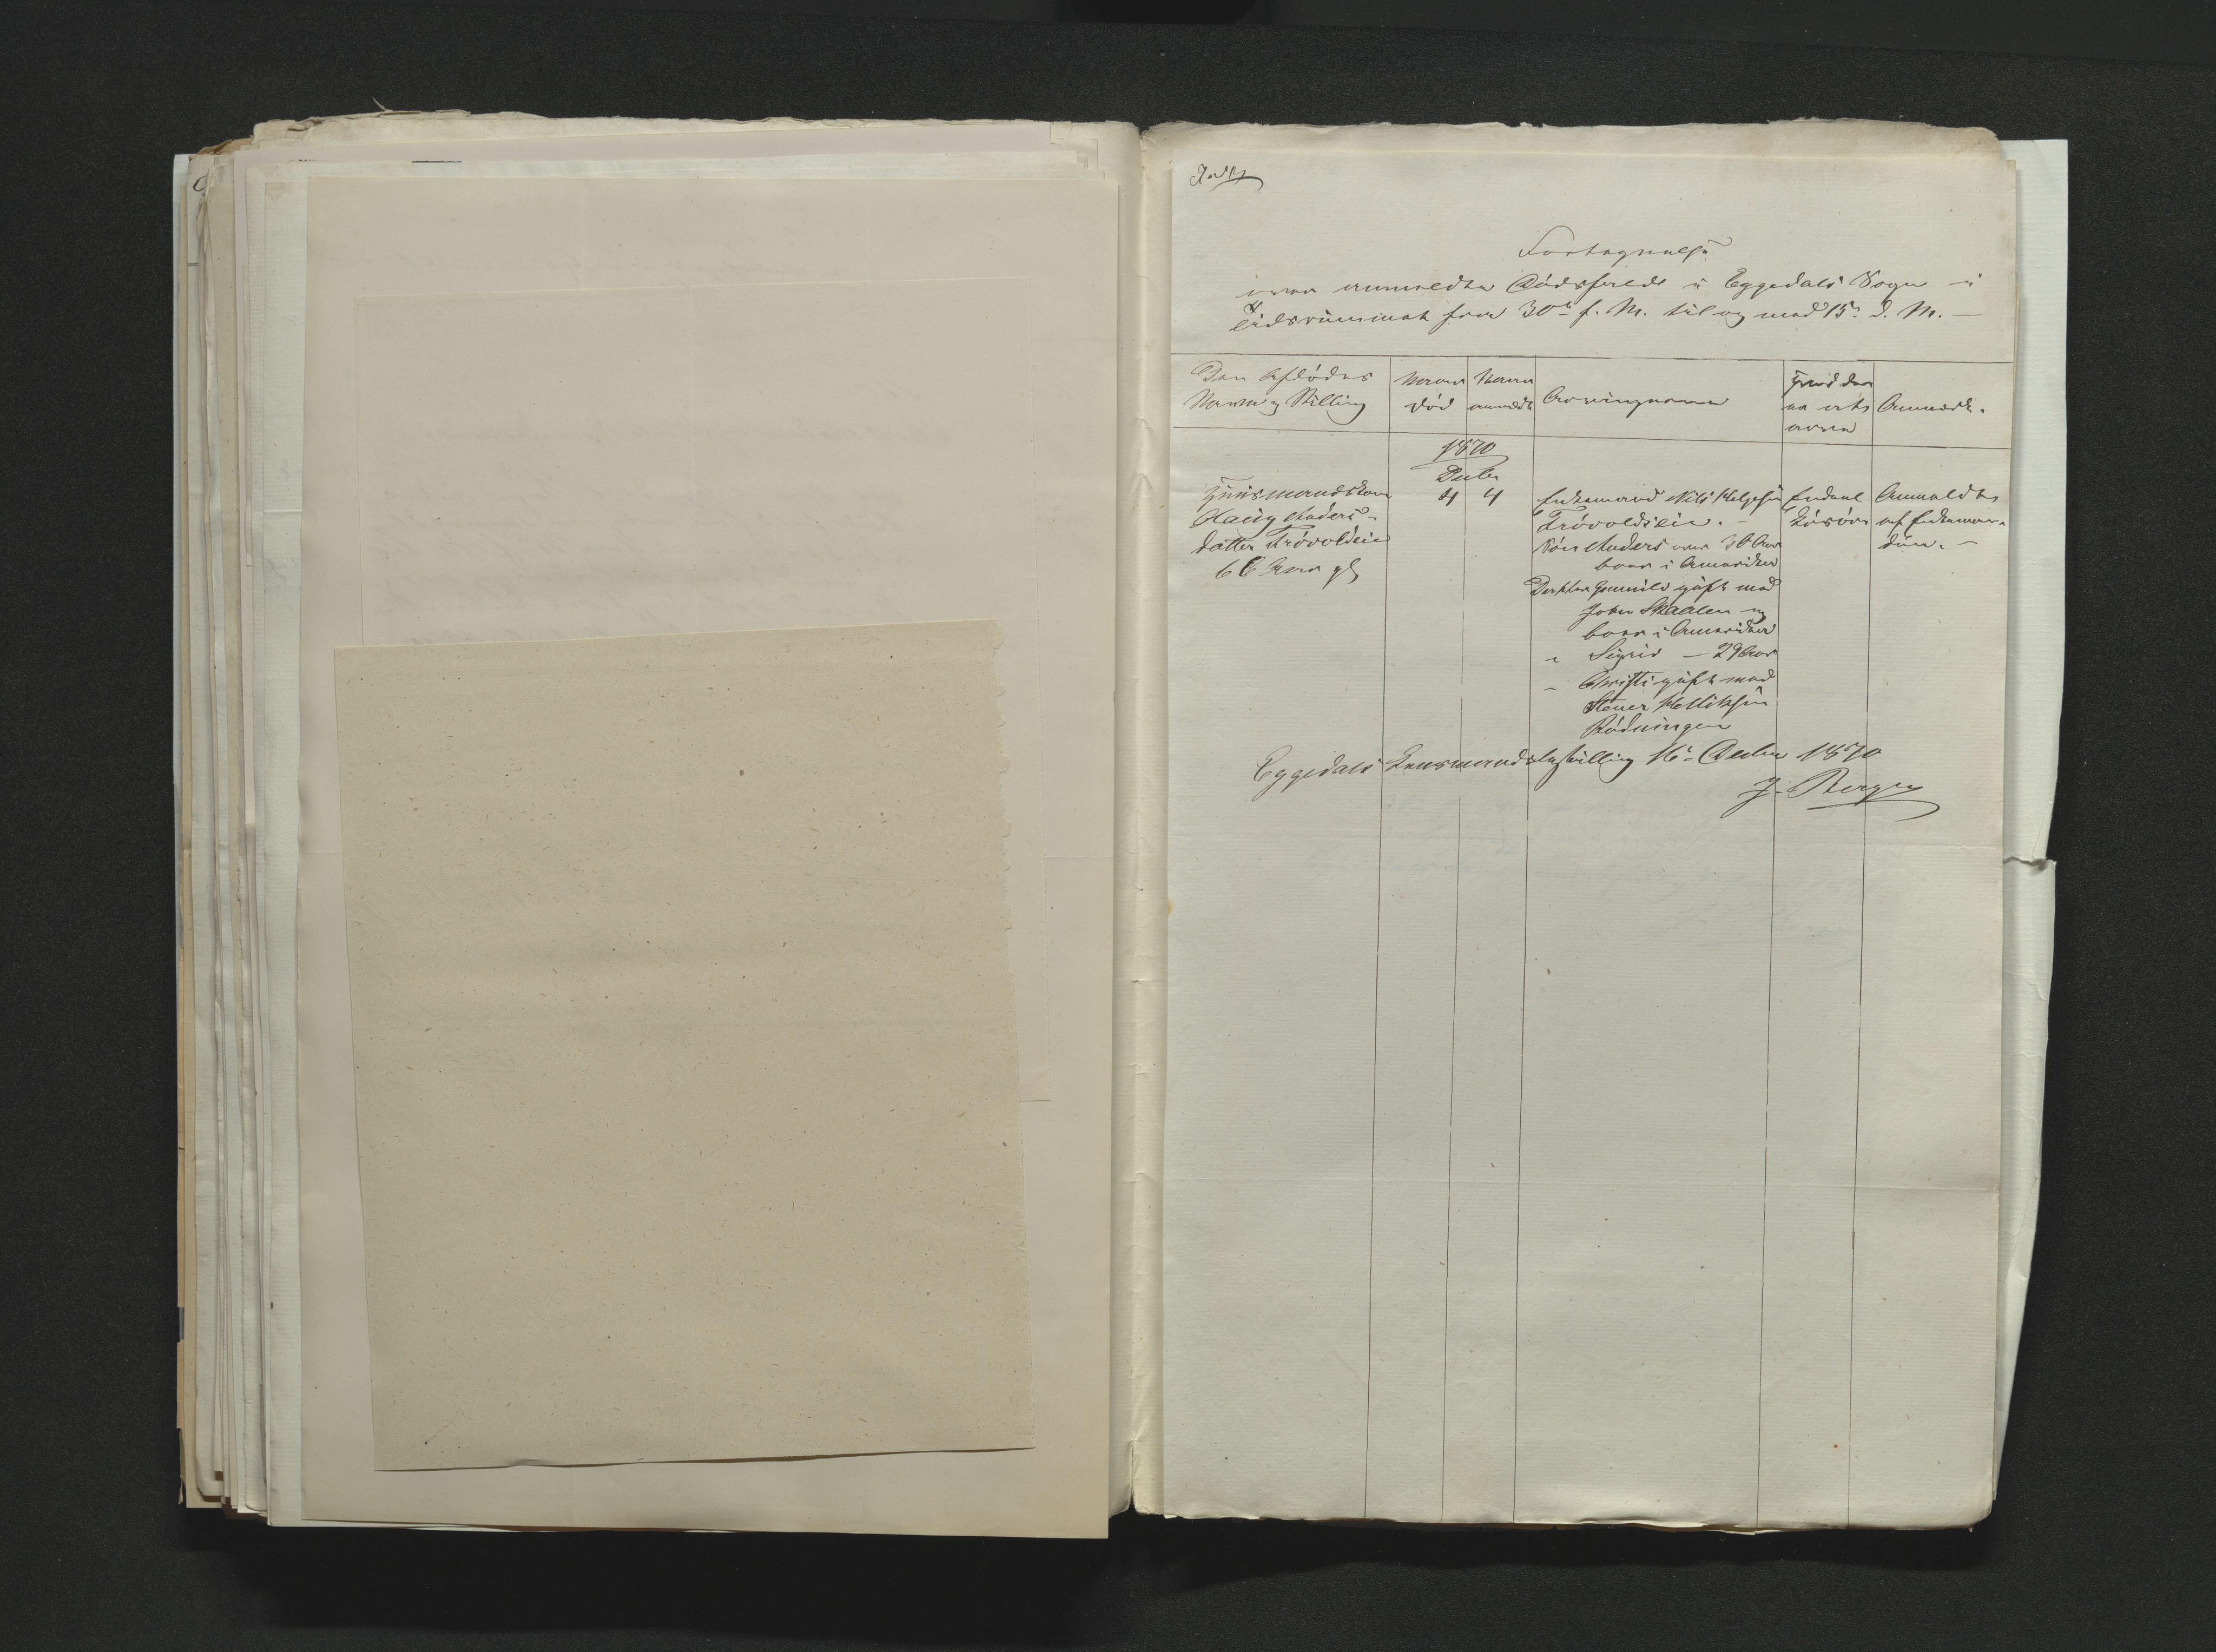 Fortegnelse
over anmeldte Dødsfald i Eggedals Sogn i
Tidsrummet fra 30te f. M. til og med 15de d. M. —
Den Afdødes Navn og Stilling
Naar død
Naar anmeldt
Arvingerne
Anmærk.
1870
Decbr
Huusmandskone
Olaug Anders-
datter Trövoldseie
66 Aar gl
4
4
Enkemand Nils Helgesen
Trövoldseie. —
Sön Anders over 30 Aar
boer i Amerika
Datter Gunnild gift med
John Skaalen og
boer i Amerika
" Sigrid — 29 Aar
" Christi gift med
Stener Helliksen
Rödningen
Anmeldt
af Enkeman-
den. —
Eggedals Lensmandsbestilling 16de Decbr 1870
J. Berger